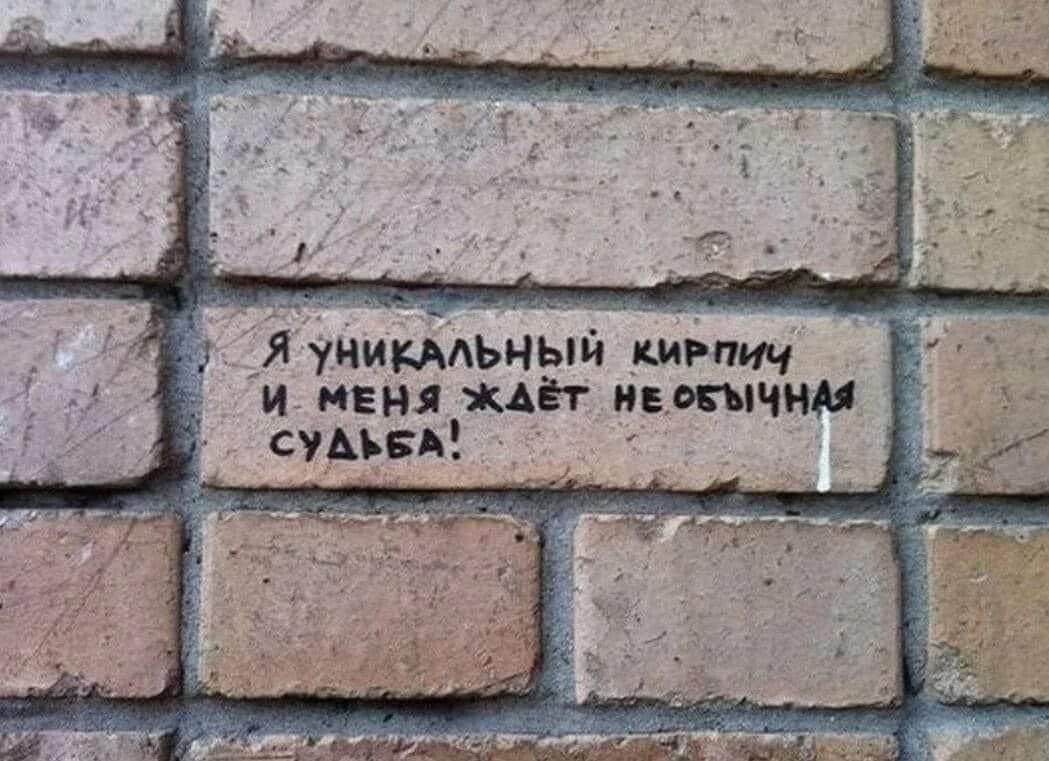 Я УНИКАЛЬНЫЙ КИРПИЧ
И МЕНЯ ЖДЁТ НЕОБЫЧНАЯ
СУДЬБА!